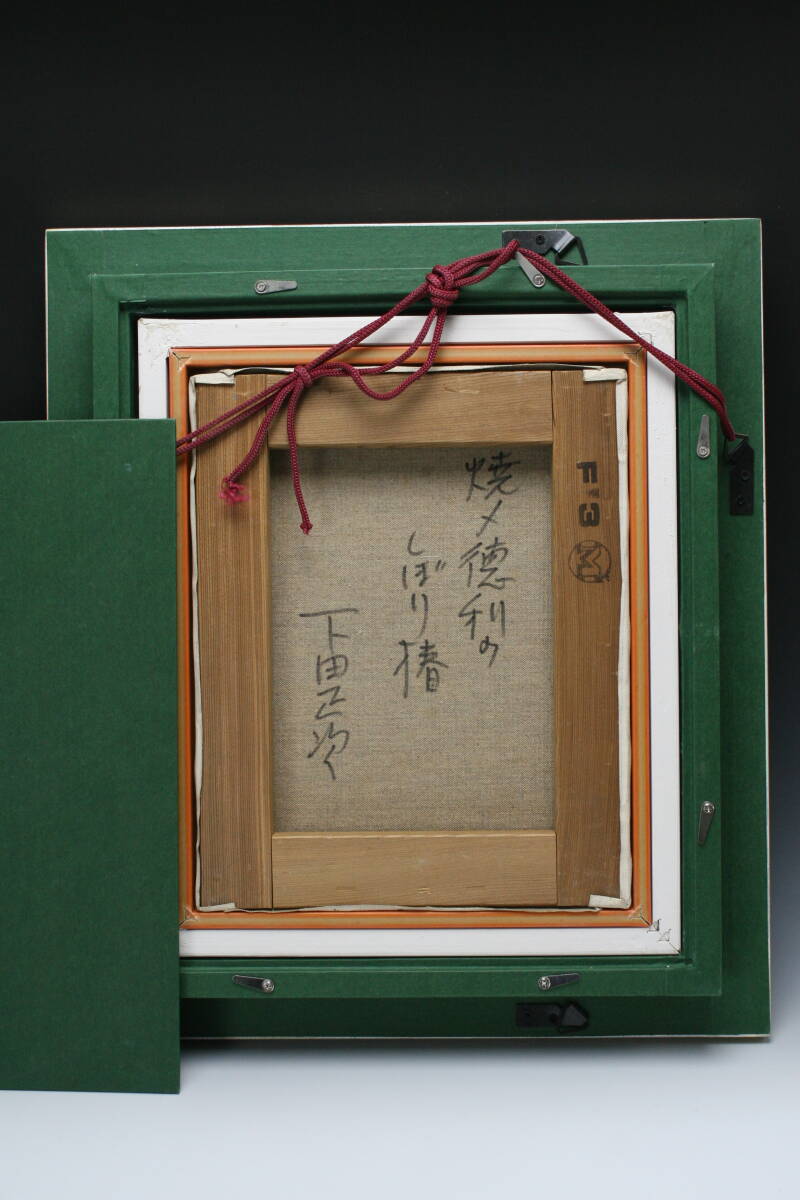 焼〆徳利の
しぼり椿
下田正次
F 3
M